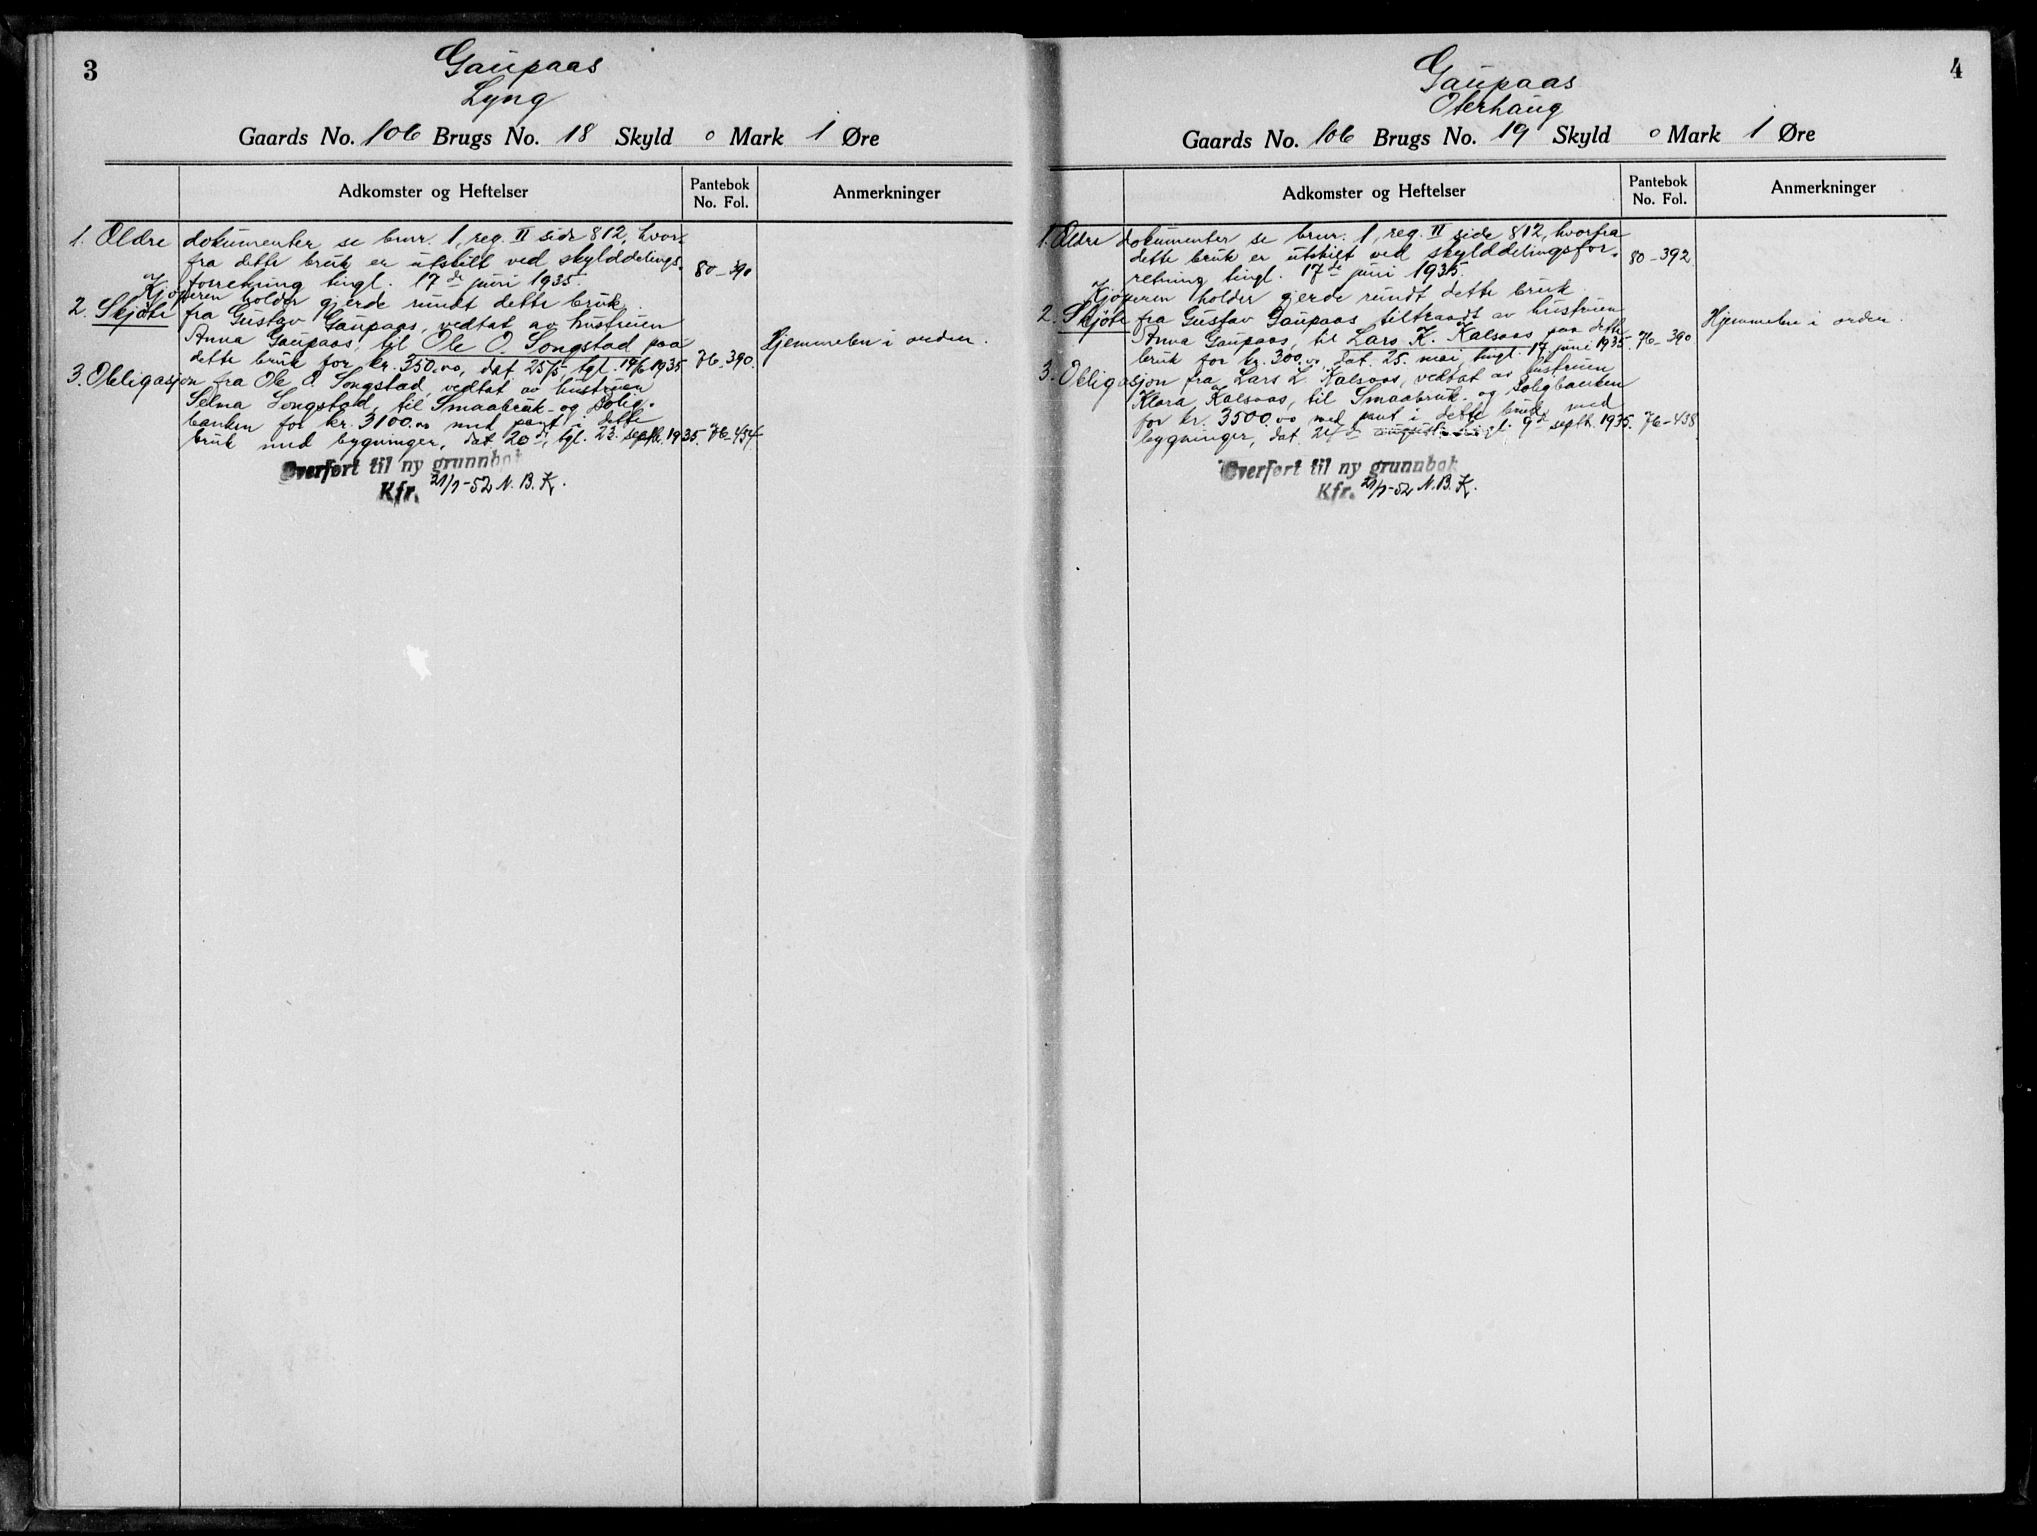 3
Gaupaas
Lyng
Gaards No. 106 Brugs No. 18 Skyld 0 Mark 1 Øre
Adkomster og Heftelser
Pantebok
No. Fol.
Anmerkninger
1. Ældre dokumenter se bnr. 1, reg. II side 812, hvor-
fra dette bruk er utskilt ved skylddelings-
forretning tingl. 17de juni 1935. 80-390
Kjøperen holder gjerde rundt dette bruk.
2. Skjøte fra Gustav Gaupaas, vedtat av hustruen
Anna Gaupaas, til Ole O. Songstad paa
dette bruk for kr. 350.00, dat 25/5, tgl. 17/6 1935 76-390. Hjemmelen i orden.
3. Obligasjon fra Ole O. Songstad, vedtat av hustruen
Selma Songstad, til Smaabruk- og Bolig-
banken for kr. 3100.00 med pant i dette
bruk med bygninger, dat 20de, tgl. 23. septb. 1935. 76-454
Overført til ny grunnbok
Kfr. 21/1-52 N.B.K.
4
Gaupaas
Oterhaug
Gaards No. 106 Brugs No. 19 Skyld 0 Mark 1 Øre
Adkomster og Heftelser
Pantebok
No. Fol.
Anmerkninger
1. Ældre dokumenter se bnr. 1, reg. II side 812, hvorfra
dette bruk er utskilt ved skylddelingsfor-
retning tingl. 17de juni 1935. 80-392
Kjøperen holder gjerde rundt dette bruk.
2. Skjøte fra Gustav Gaupaas tiltraadt av hustruen
Anna Gaupaas, til Lars K. Kalsaas paa dette
bruk for kr. 300.00, dat. 25. mai, tingl. 17 juni 1935. 76-390 Hjemmelen i orden.
3. Obligasjon fra Lars K. Kalsaas, vedtat av hustruen
Klara Kalsaas, til Smaabruk- og Boligbanken
for kr. 3500.00 med pant i dette bruk med
bygninger, dat. august tingl. 9de septb. 1935. 76-438.
Overført til ny grunnbok
Kfr. 21/1-52 N.B.K.